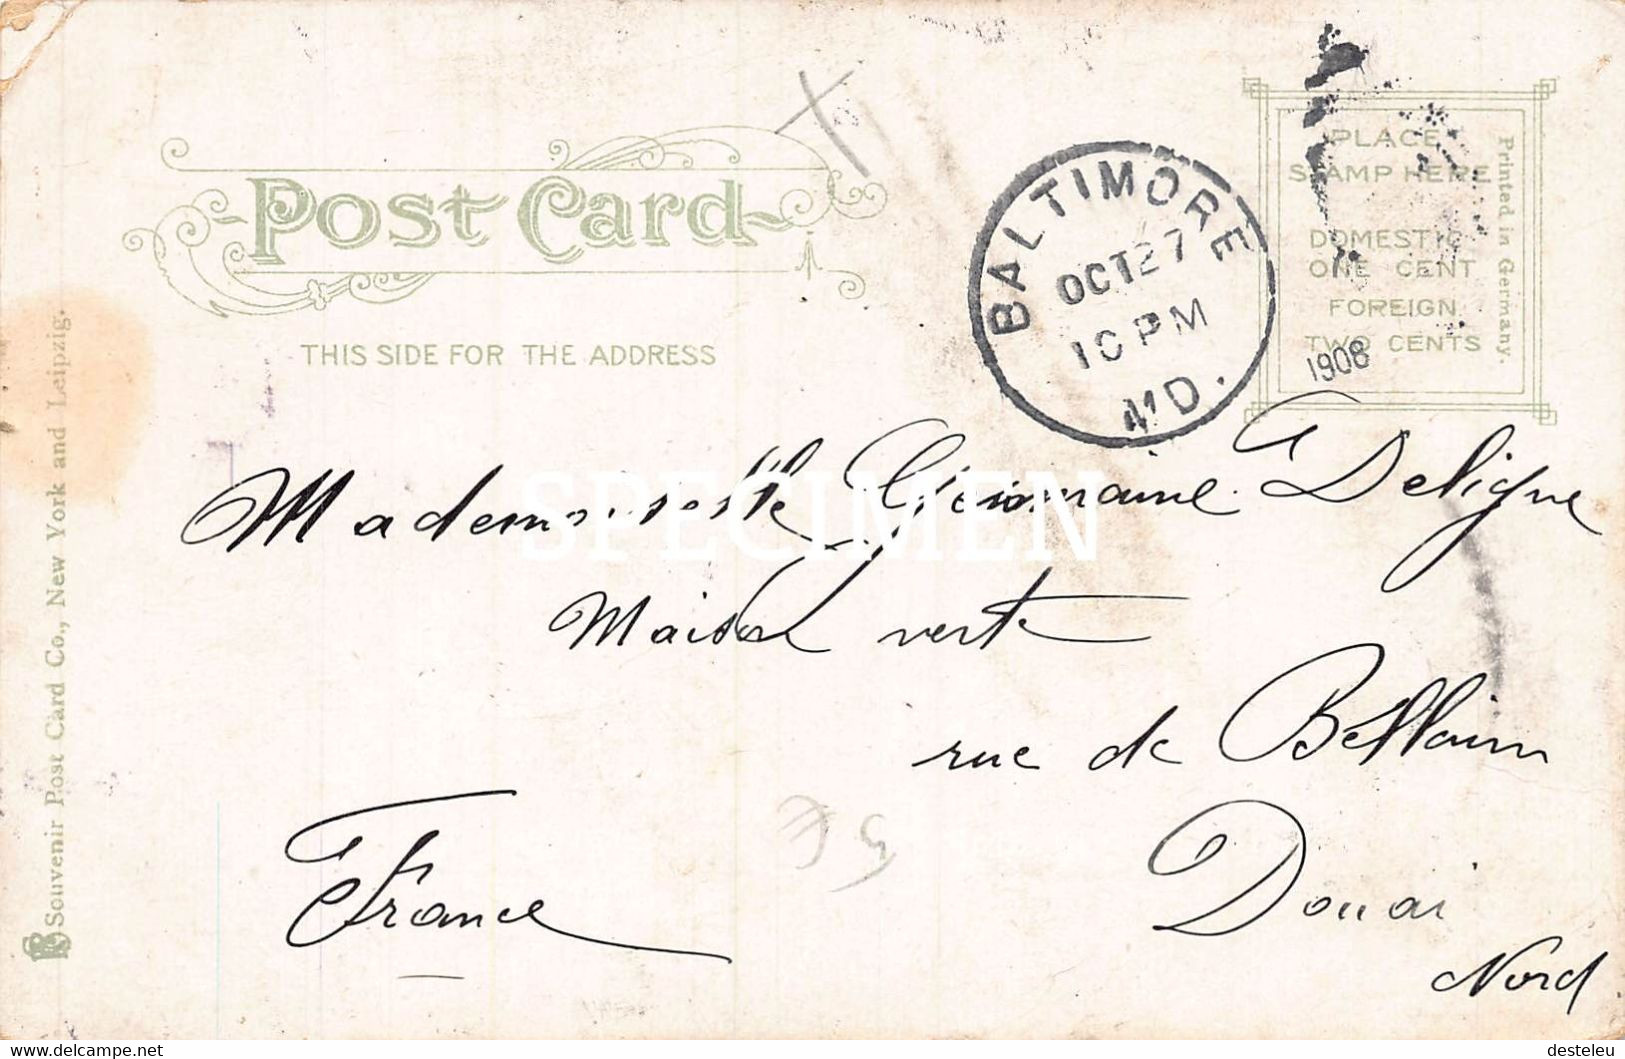 Post Card
THIS SIDE FOR THE ADDRESS
BALTIMORE
OCT 27
10 PM
MD.
1908
PLACE
STAMP HERE
DOMESTIC
ONE CENT
FOREIGN
TWO CENTS
Printed in Germany.
Souvenir Post Card Co., New York and Leipzig.
SPECIMEN
Mademoiselle Germaine Deligne
Maison verte
rue de Bellain
Douai
Nord
France
5 €
delcampe.net
desteleu